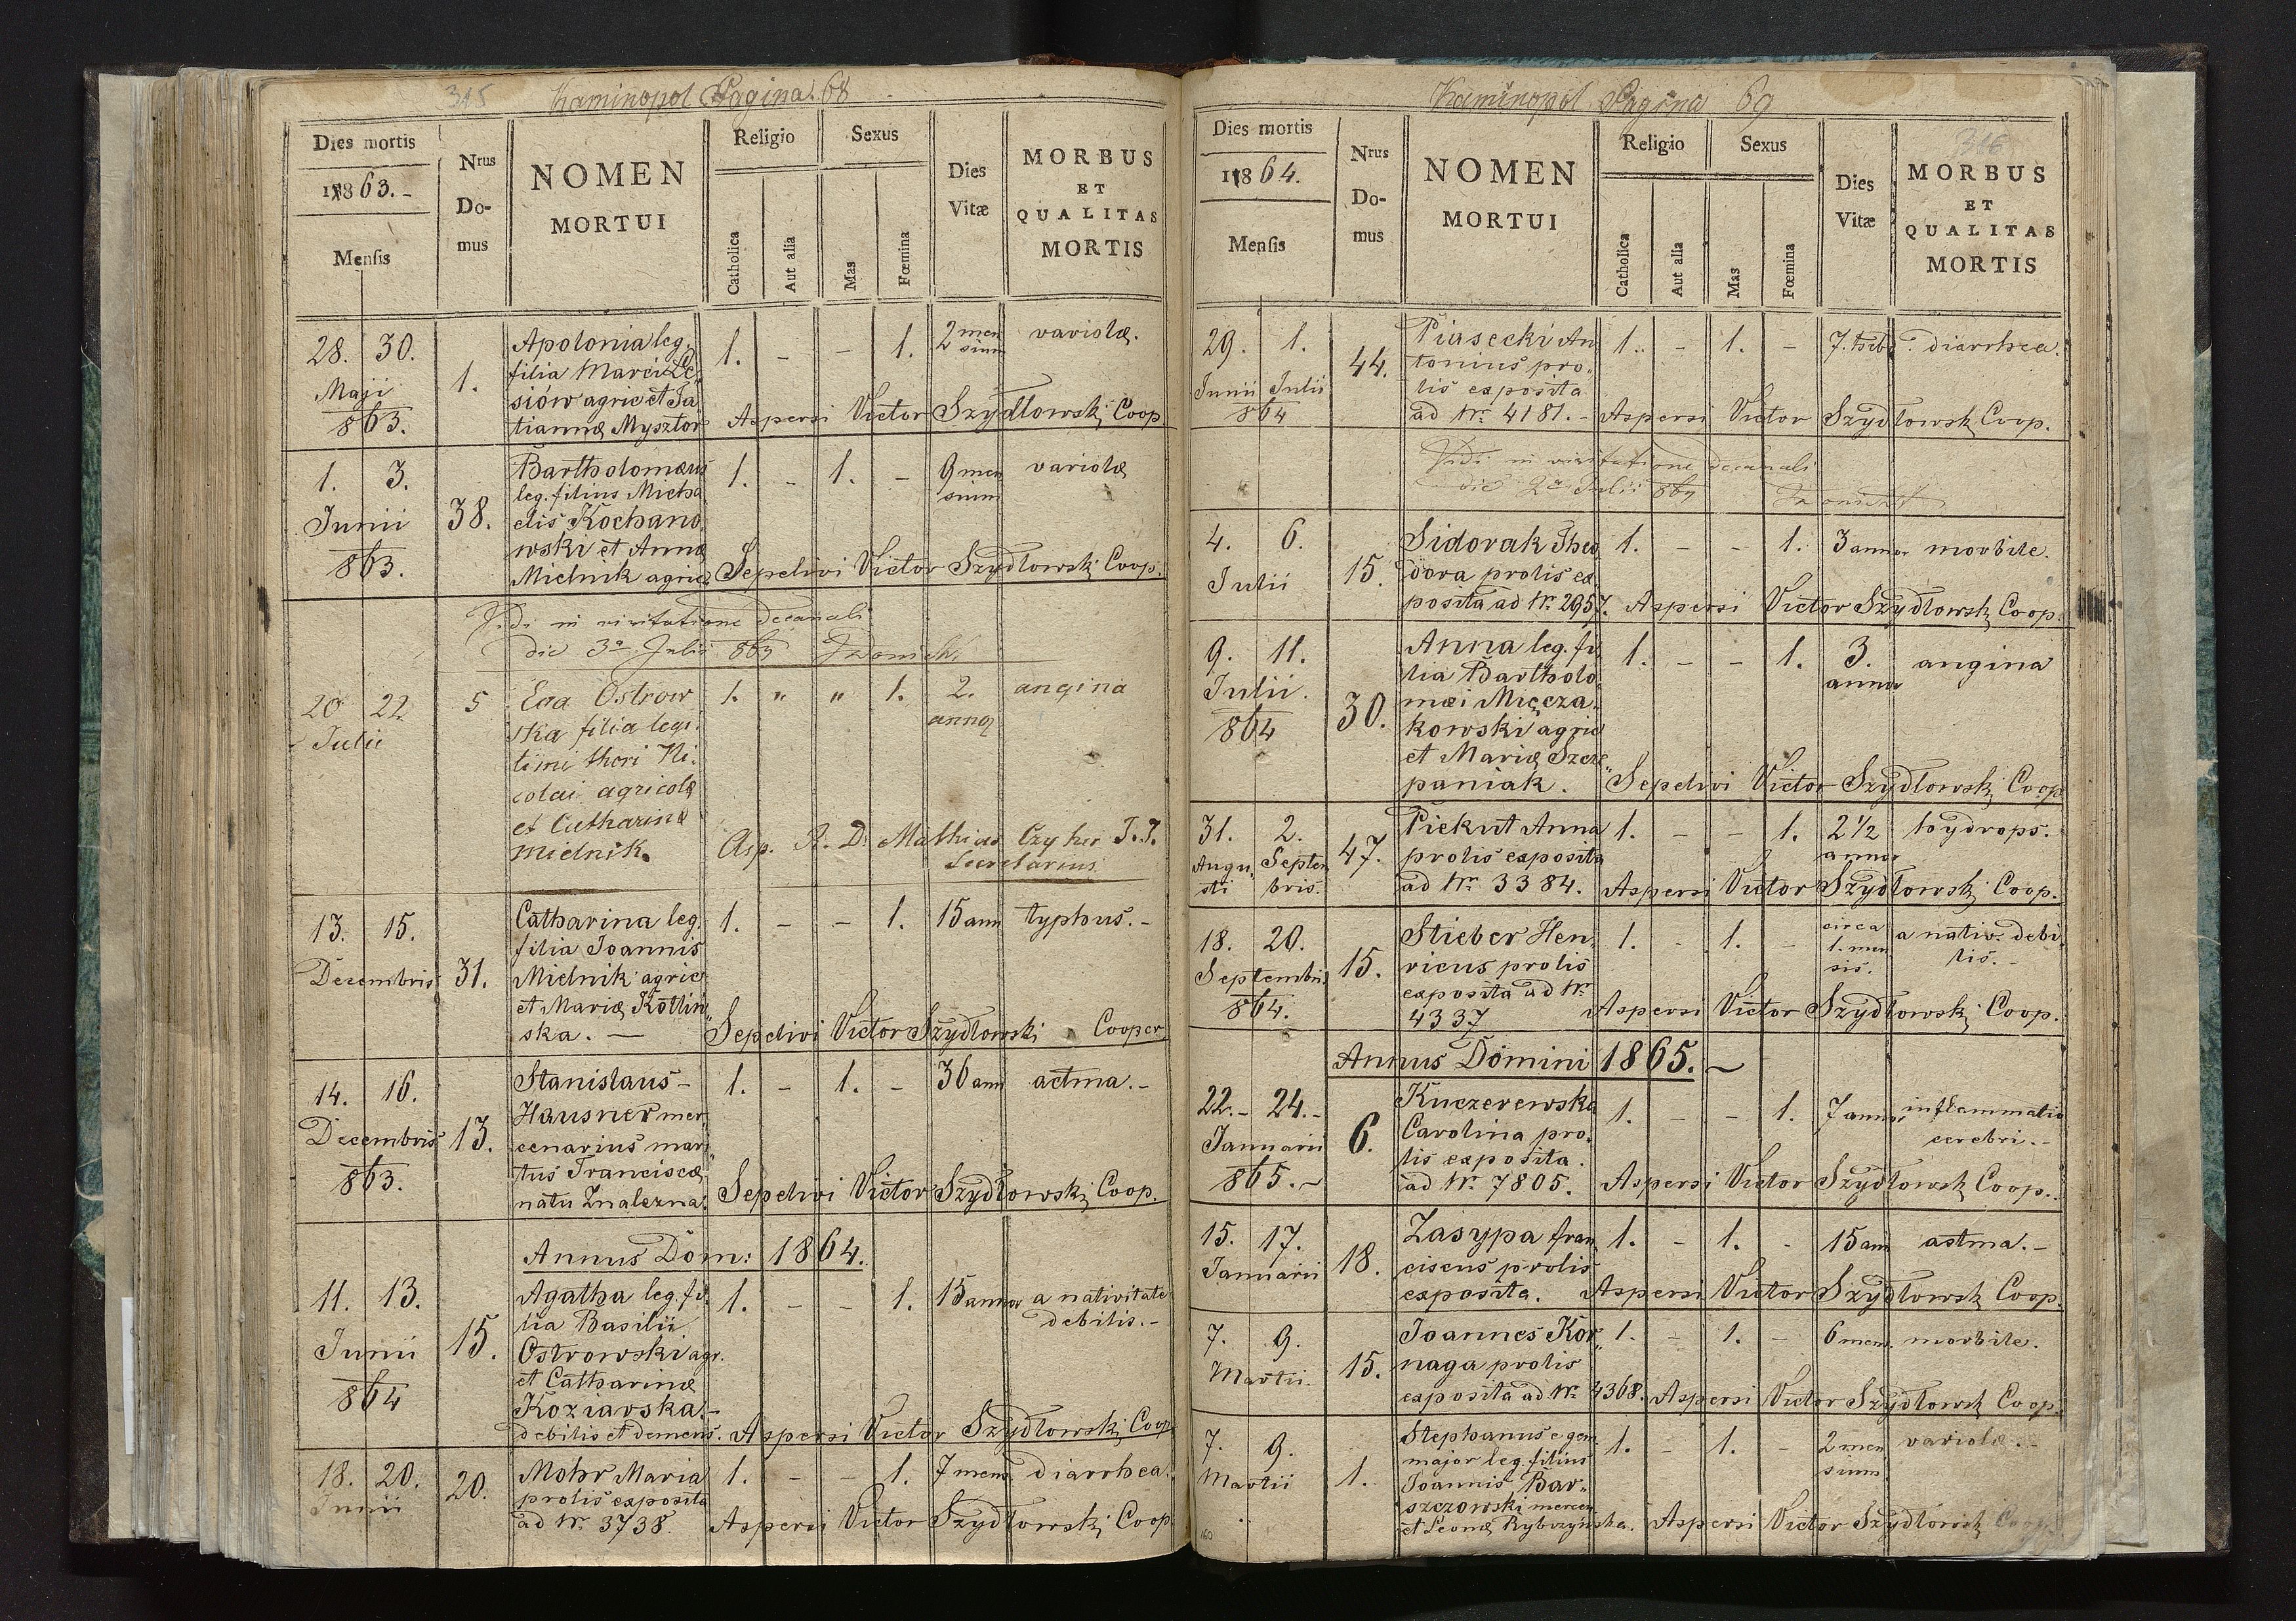 315 Kaminopol Pagina 68
Dies mortis
1863.-
Mensis
Nrus Domus
NOMEN
MORTUI
Religio
Catholica
Aut alia
Sexus
Mas
Fœmina
Dies
Vitæ
MORBUS
ET
QUALITAS
MORTIS
28. 30. Apolonia leg. 1. - - 1. 2 men variolæ.
Maji 1. filia Marci Le sium
863. siów agric et Ta
tiannæ Mysztor Aspersi Victor Szydlowski Coop
1. 3. Bartholomæus 1. - 1. - 9 men variolæ
Junii 38. leg. filius Micha sium
863. elis Kochano
wski et Annæ
Mielnik agric. Sepelivi Victor Szydlowski Coop.
Vidi in visitatione decanali
die 3a Julii 863
20 22 5 Eva Ostrow 1. " " 1. 2. angina
Julii ska filia legi anno
timi thori Ni
colai agricolæ
et Catharinæ
Mielnik. Asp. R. D. Mathias Czyher
Secretarius
13. 15. Catharina leg. 1. - - 1. 15 ann typhus.-
filia Joannis
Decembris 31. Mielnik agric
et Mariæ Kotlin
ska. — Sepelivi Victor Szydlowski Cooper
14. 16. Stanislaus - 1. - 1. - 36 ann astma.-
Hausner mer
Decembris 13. cenarius mari
863. tus Franciscæ
natu Znalezna. Sepelivi Victor Szydlowski Coop.
Annus Dom: 1864.
11. 13. Agatha leg. fi 1. - - 1. 15 annor a nativitate
lia Basilii debilis.-
Junii 15. Ostrowski agr.
864 et Catharinæ
Koziarska.-
debilis et demens. Aspersi Victor Szydlowski Coop
18. 20. 20. Mohr Maria 1. - - 1. 7 mens. diarrhea.
Junii prolis exposita
ad Nr. 3738. Aspersi Victor Szydlowski Coop
Kaminopol Pagina 69
316
Dies mortis
1864.
Mensis
Nrus Domus
NOMEN
MORTUI
Religio
Catholica
Aut alia
Sexus
Mas
Fœmina
Dies
Vitæ
MORBUS
ET
QUALITAS
MORTIS
29. 1. Piasecki An 1. - 1. - 7. heb. diarrhea.
44. tonius pro
Junii Julii lis exposita
864 ad Nr. 4181. - Aspersi Victor Szydlowski Coop.
Vidi in visitatione decanali
die 2a Julii 864
4. 6. Sidorak Theo 1. - - 1. 3 annor morbile.
Julii 15. dora prolis ex
posita ad Nr. 2957. Aspersi Victor Szydlowski Coop.
9. 11. Anna leg. fi 1. - - 1. 3. angina
Julii. lia Bartholo annor
864 30. mæi Mięcza
kowski agric
et Mariæ Szcze
paniak. Sepelivi Victor Szydlowski Coop
31. 2. Piekut Anna 1. - - 1. 2 1/2 hydrops.
Augu Septem 47. prolis exposita annor
sti bris. ad Nr. 3384. Aspersi Victor Szydlowski Coop.
18. 20. Stieber Hen 1. - 1. - circa a nativ. debi
15. ricus prolis 1. men lis. -
Septembris exposita ad Nr. sis.
864. 4337 Aspersi Victor Szydlowski Coop.
Annus Domini 1865. ~
22.- 24.- Kuczerewska 1. - - 1. 7 annor inflammatio
Januarii 6. Carolina pro cerebri.-
lis exposita.
865.~ ad Nr. 7805. Aspersi Victor Szydlowski Coop.
15. 17. Zasypa Fran 1. - 1. - 15 ann astma.-
Januarii 18. ciscus prolis
exposita. Aspersi Victor Szydlowski Coop.
7. 9. Joannes Kor 1. - 1. - 6 mens. morbile.
Martii 15. naga prolis
exposita ad Nr. 4368. Aspersi Victor Szydlowski Coop.
7. 9. Stephanus e gem 1. - 1. - 2 men variolæ.-
Martii 1. major leg. filius sium
Joannis Bar
szczowski mercen
et Leonæ Rybczyńska. Aspersi Victor Szydlowski Coop.
160